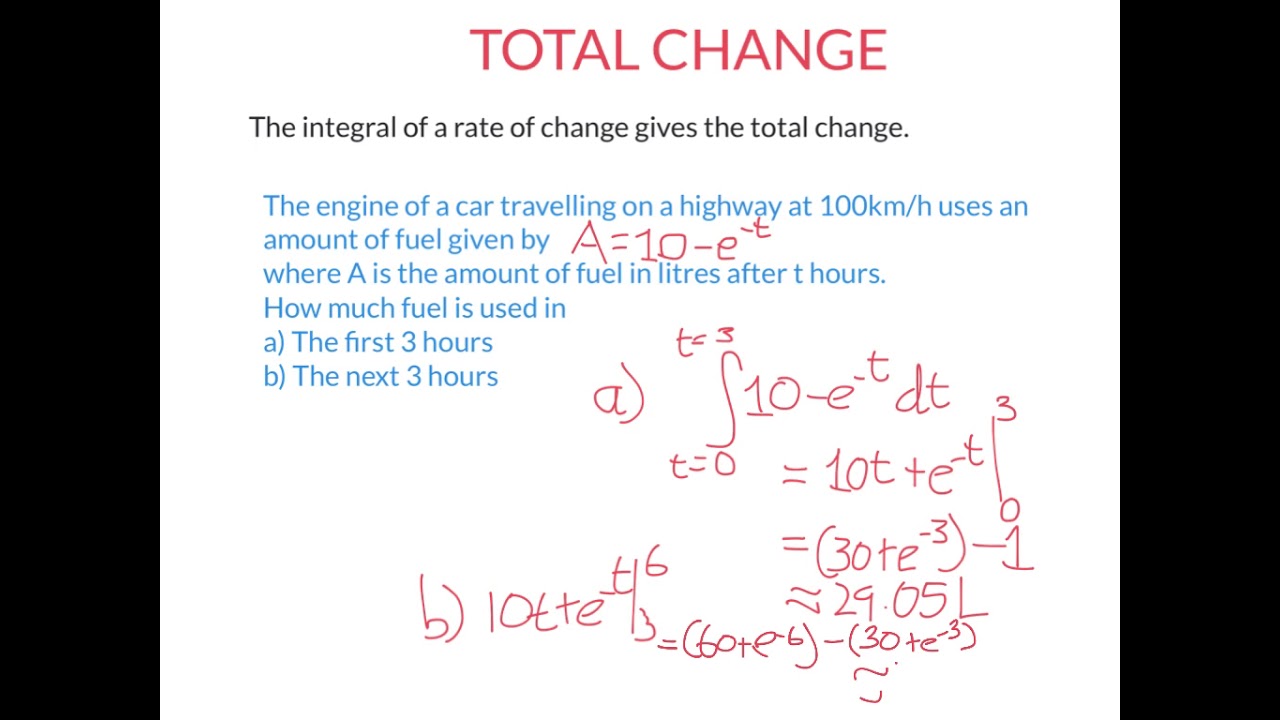 TOTAL CHANGE
The integral of a rate of change gives the total change.
The engine of a car travelling on a highway at 100km/h uses an
amount of fuel given by A=10-e^-t
where A is the amount of fuel in litres after t hours.
How much fuel is used in
a) The first 3 hours
b) The next 3 hours
t=3
a) ∫10-e^-t dt
t=0
= 10t+e^-t |3 0
=(30+e^-3)-1
≈29.05L
b) 10t+e^-t |6 3 =(60+e^-6)-(30+e^-3)
≈